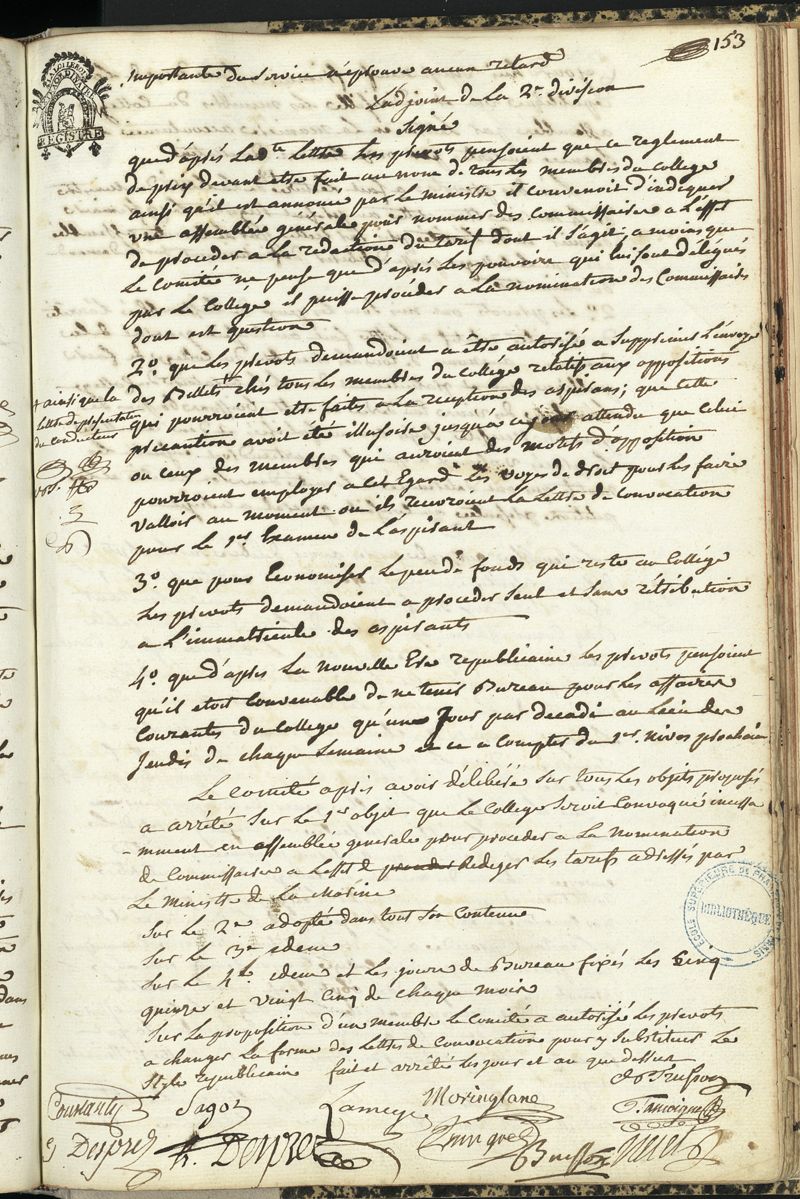 153
LA LOI LE ROI
EXTRAORDINAIRE
REGISTRE
Importante du service n'éprouve aucun retard
L'adjoint de La 2e division
Signé
que d'après Lad.te Lettre Les prevots pensoient que ce reglement
de prix devant etre fait au nom de tous Les membres du College
ainsi qu'il est annoncé par Le ministre il convenoit d'indiquer
une assemblée générale pour nommer des Commissaires a L'effet
de proceder a La redaction du tarif dont il s'agit, a moins que
Le Comité ne pense que d'après Les pouvoirs qui lui sont délégués
par Le College il puisse procéder a La nomination des Commissaires
dont est question
2.o que Les prevots demandoient a être autorisé a Supprimer L'envoye
des Billets chés tous Les membres du Collége relatifs aux oppositions
+ ainsi que la
Lettre de présentation
du conducteur
qui pourroient etre faites a La reception des aspirans; que cette
précaution avoit été illusoire jusqu'a ce jour attendu que Celui
ou ceux des membres qui auroient des motifs d'opposition
pourroient employer a cet Egard Les voyes de droit pour Les faire
valloir au moment ou ils recevroient La Lettre de Convocation
pour Le 1.er Examen de L'aspirant
3.o que pour Economiser Le peu de fonds qui reste au Collége
Les prevots demandoient a proceder Seul et Sans rétribution
a L'immatricule des aspirants
4.o que d'après La nouvelle Ere republicaine Les prevots pensoient
qu'il etoit Convenable de ne tenir Bureau pour Les affaires
Courantes du College qu'un Jour par decadi au Lieu des
Jeudis de chaque Semaine et ce a Compter du 1.er Nivos prochain
Le Comité après avoir délibéré Sur tous Les objets proposés
a arrêté Sur Le 1.er objet que Le College Seroit Convoqué incessa
-mment en assemblée generale pour proceder a La nomination
de Commissaires a L'effet de proceder Rediger Les tarifs adressés par
Le Ministre de La Marine
Sur Le 2e adopté dans tout Son Contenu
Sur Le 3e idem
Sur Le 4e idem et Les jours de Bureau fixés Les Cinq
quinze et vingt Cinq de chaque mois
Sur La proposition d'un membre Le Comité a autorisé Les prevots
a changer La forme des Lettres de Convocations pour y Substituer Le
Style republicain fait et arrêté Les jour et an que dessus
ECOLE SUPÉRIEURE DE PHARMACIE PARIS
BIBLIOTHÈQUE
Trusson
Coustant Sagot Lamegie Moringlane
Desprez Buisson